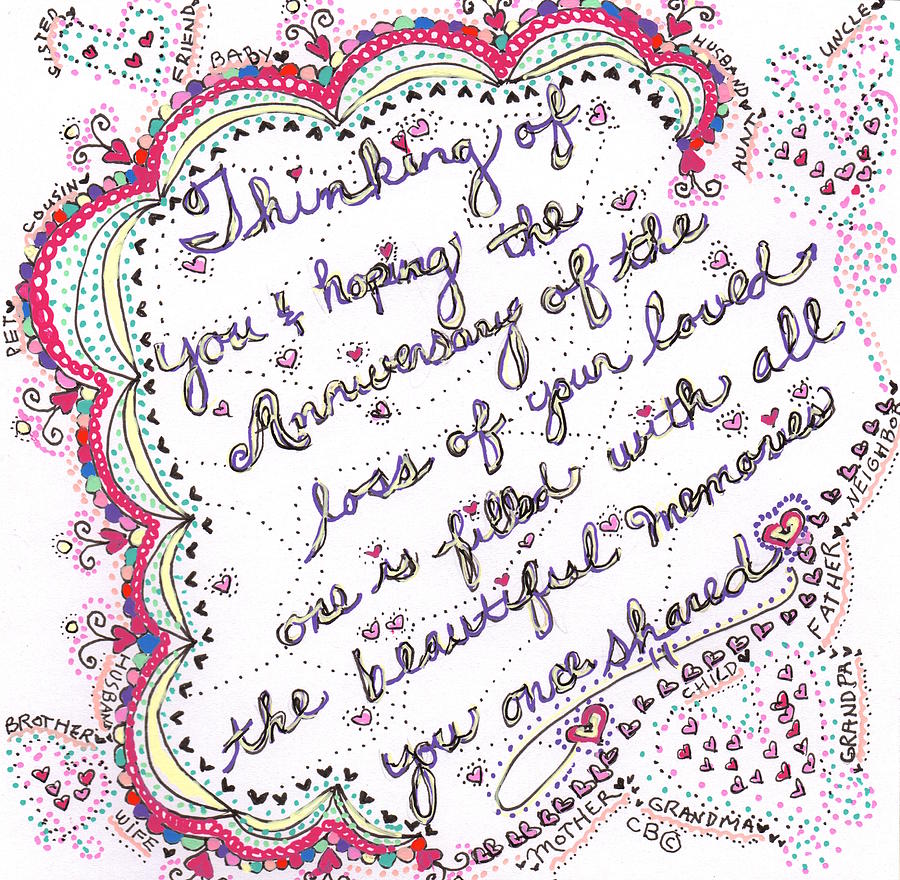 SISTER
FRIEND
BABY
HUSBAND
AUNT
UNCLE
COUSIN
PET
Thinking of
you & hoping the
Anniversary of the
loss of your loved
one is filled with all
the beautiful memories
you once shared
NEIGHBOR
FATHER
CHILD
GRANDPA
HUSBAND
BROTHER
WIFE
MOTHER
GRANDMA
CB©